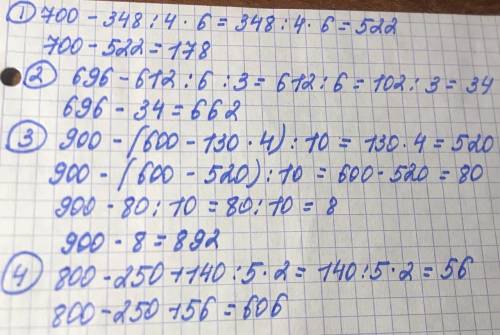 ① 700 - 348 : 4 · 6 = 348 : 4 · 6 = 522
700 - 522 = 178
② 696 - 612 : 6 : 3 = 612 : 6 = 102 : 3 = 34
696 - 34 = 662
③ 900 - (600 - 130 · 4) : 10 = 130 · 4 = 520
900 - (600 - 520) : 10 = 600 - 520 = 80
900 - 80 : 10 = 80 : 10 = 8
900 - 8 = 892
④ 800 - 250 + 140 : 5 · 2 = 140 : 5 · 2 = 56
800 - 250 + 56 = 606